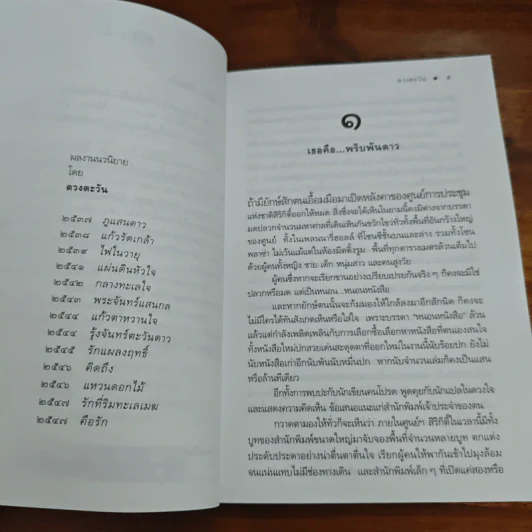 ผลงานนวนิยาย
โดย
ดวงตะวัน
๒๕๓๗ ภูแสนดาว
๒๕๓๘ แก้วรัดเกล้า
๒๕๓๙ ไฟในวายุ
๒๕๔๑ แผ่นดินหัวใจ
๒๕๔๒ กลางทะเลใจ
๒๕๔๓ พระจันทร์แสนกล
๒๕๔๔ แก้วตาหวานใจ
๒๕๔๔ รุ้งจันทร์ตะวันดาว
๒๕๔๕ รักแผลงฤทธิ์
๒๕๔๖ คิดถึง
๒๕๔๖ แหวนดอกไม้
๒๕๔๗ รักที่ริมทะเลเมฆ
๒๕๔๗ คือรัก
ดวงตะวัน
๑
เธอคือ...พริบพันดาว
ถ้ามียักษ์สักตนเอื้อมมือมาเปิดหลังคาของศูนย์การประชุม
แห่งชาติสิริกิติ์ออกให้หมด สิ่งซึ่งจะได้เห็นในยามนี้คงมิต่างจากบรรดา
มดปลวกจำนวนมหาศาลที่เดินเหินกันขวักไขว่ทั่วทั้งพื้นที่อันกว้างใหญ่
ของศูนย์ ทั้งในเพลนนารีฮอลล์ ที่โซนซีชั้นบนและล่าง รวมทั้งโซน
พลาซ่า ไม่เว้นแม้แต่ในห้องมีตติ้งรูม พื้นที่ทุกตารางเมตรล้วนเต็มไป
ด้วยผู้คนทั้งหญิง ชาย เด็ก หนุ่มสาว และคนสูงวัย
ผู้คนซึ่งหากจะเรียกขานอย่างเปรียบเปรยกันจริง ๆ ก็คงจะมิใช่
ปลวกหรือมด แต่เป็นหนอน...หนอนหนังสือ
และหากยักษ์ตนนั้นจะก้มมองให้ใกล้ลงมาอีกสักนิด ก็คงจะ
ไม่มีใครได้ทันสังเกตเห็นหรือใส่ใจ เพราะบรรดา "หนอนหนังสือ" ล้วน
แล้วแต่กำลังเพลิดเพลินกับการเลือกซื้อเลือกหาหนังสือที่ตนเองสนใจ
ทั้งหนังสือใหม่ปกสวยเด่นสะดุดตาที่ออกใหม่ในงานนี้นับร้อยปก ยังไม่
นับหนังสือเก่าอีกนับพันนับหมื่นปก หากนับจำนวนเล่มก็คงเป็นแสน
หรือล้านทีเดียว
อีกทั้งการพบปะกับนักเขียนคนโปรด พูดคุยกับนักแปลในดวงใจ
และแสดงความคิดเห็น ข้อเสนอแนะแก่สำนักพิมพ์เจ้าประจำของตน
กวาดตามองให้ทั่วก็จะเห็นว่า ภายในศูนย์ฯ สิริกิติ์ในเวลานี้มีทั้ง
บูทของสำนักพิมพ์ขนาดใหญ่มาจับจองพื้นที่จำนวนหลายบูท ตกแต่ง
ประดับประดาอย่างน่าตื่นตาตื่นใจ เรียกผู้คนให้พากันเข้าไปมุงล้อม
จนแน่นแทบไม่มีช่องทางเดิน และสำนักพิมพ์เล็ก ๆ ที่เปิดแค่สองหรือ